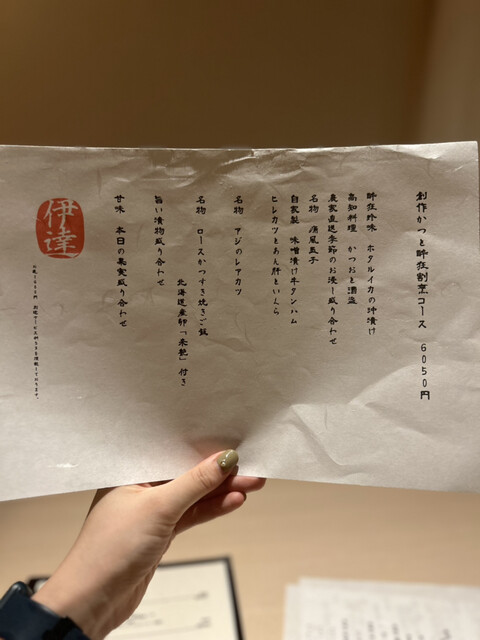 創作かつと酔狂割烹コース 6050円
酔狂珍味 ホタルイカの沖漬け
高知料理 かつおと酒盗
農家直送季節のお浸し盛り合わせ
名物 痛風玉子
自家製 味噌漬け牛タンハム
ヒレカツとあん肝といくら
名物 アジのレアカツ
名物 ロースかつすき焼きご飯
北海道産卵「米艶」付き
旨い漬物盛り合わせ
甘味 本日の果実盛り合わせ
伊達